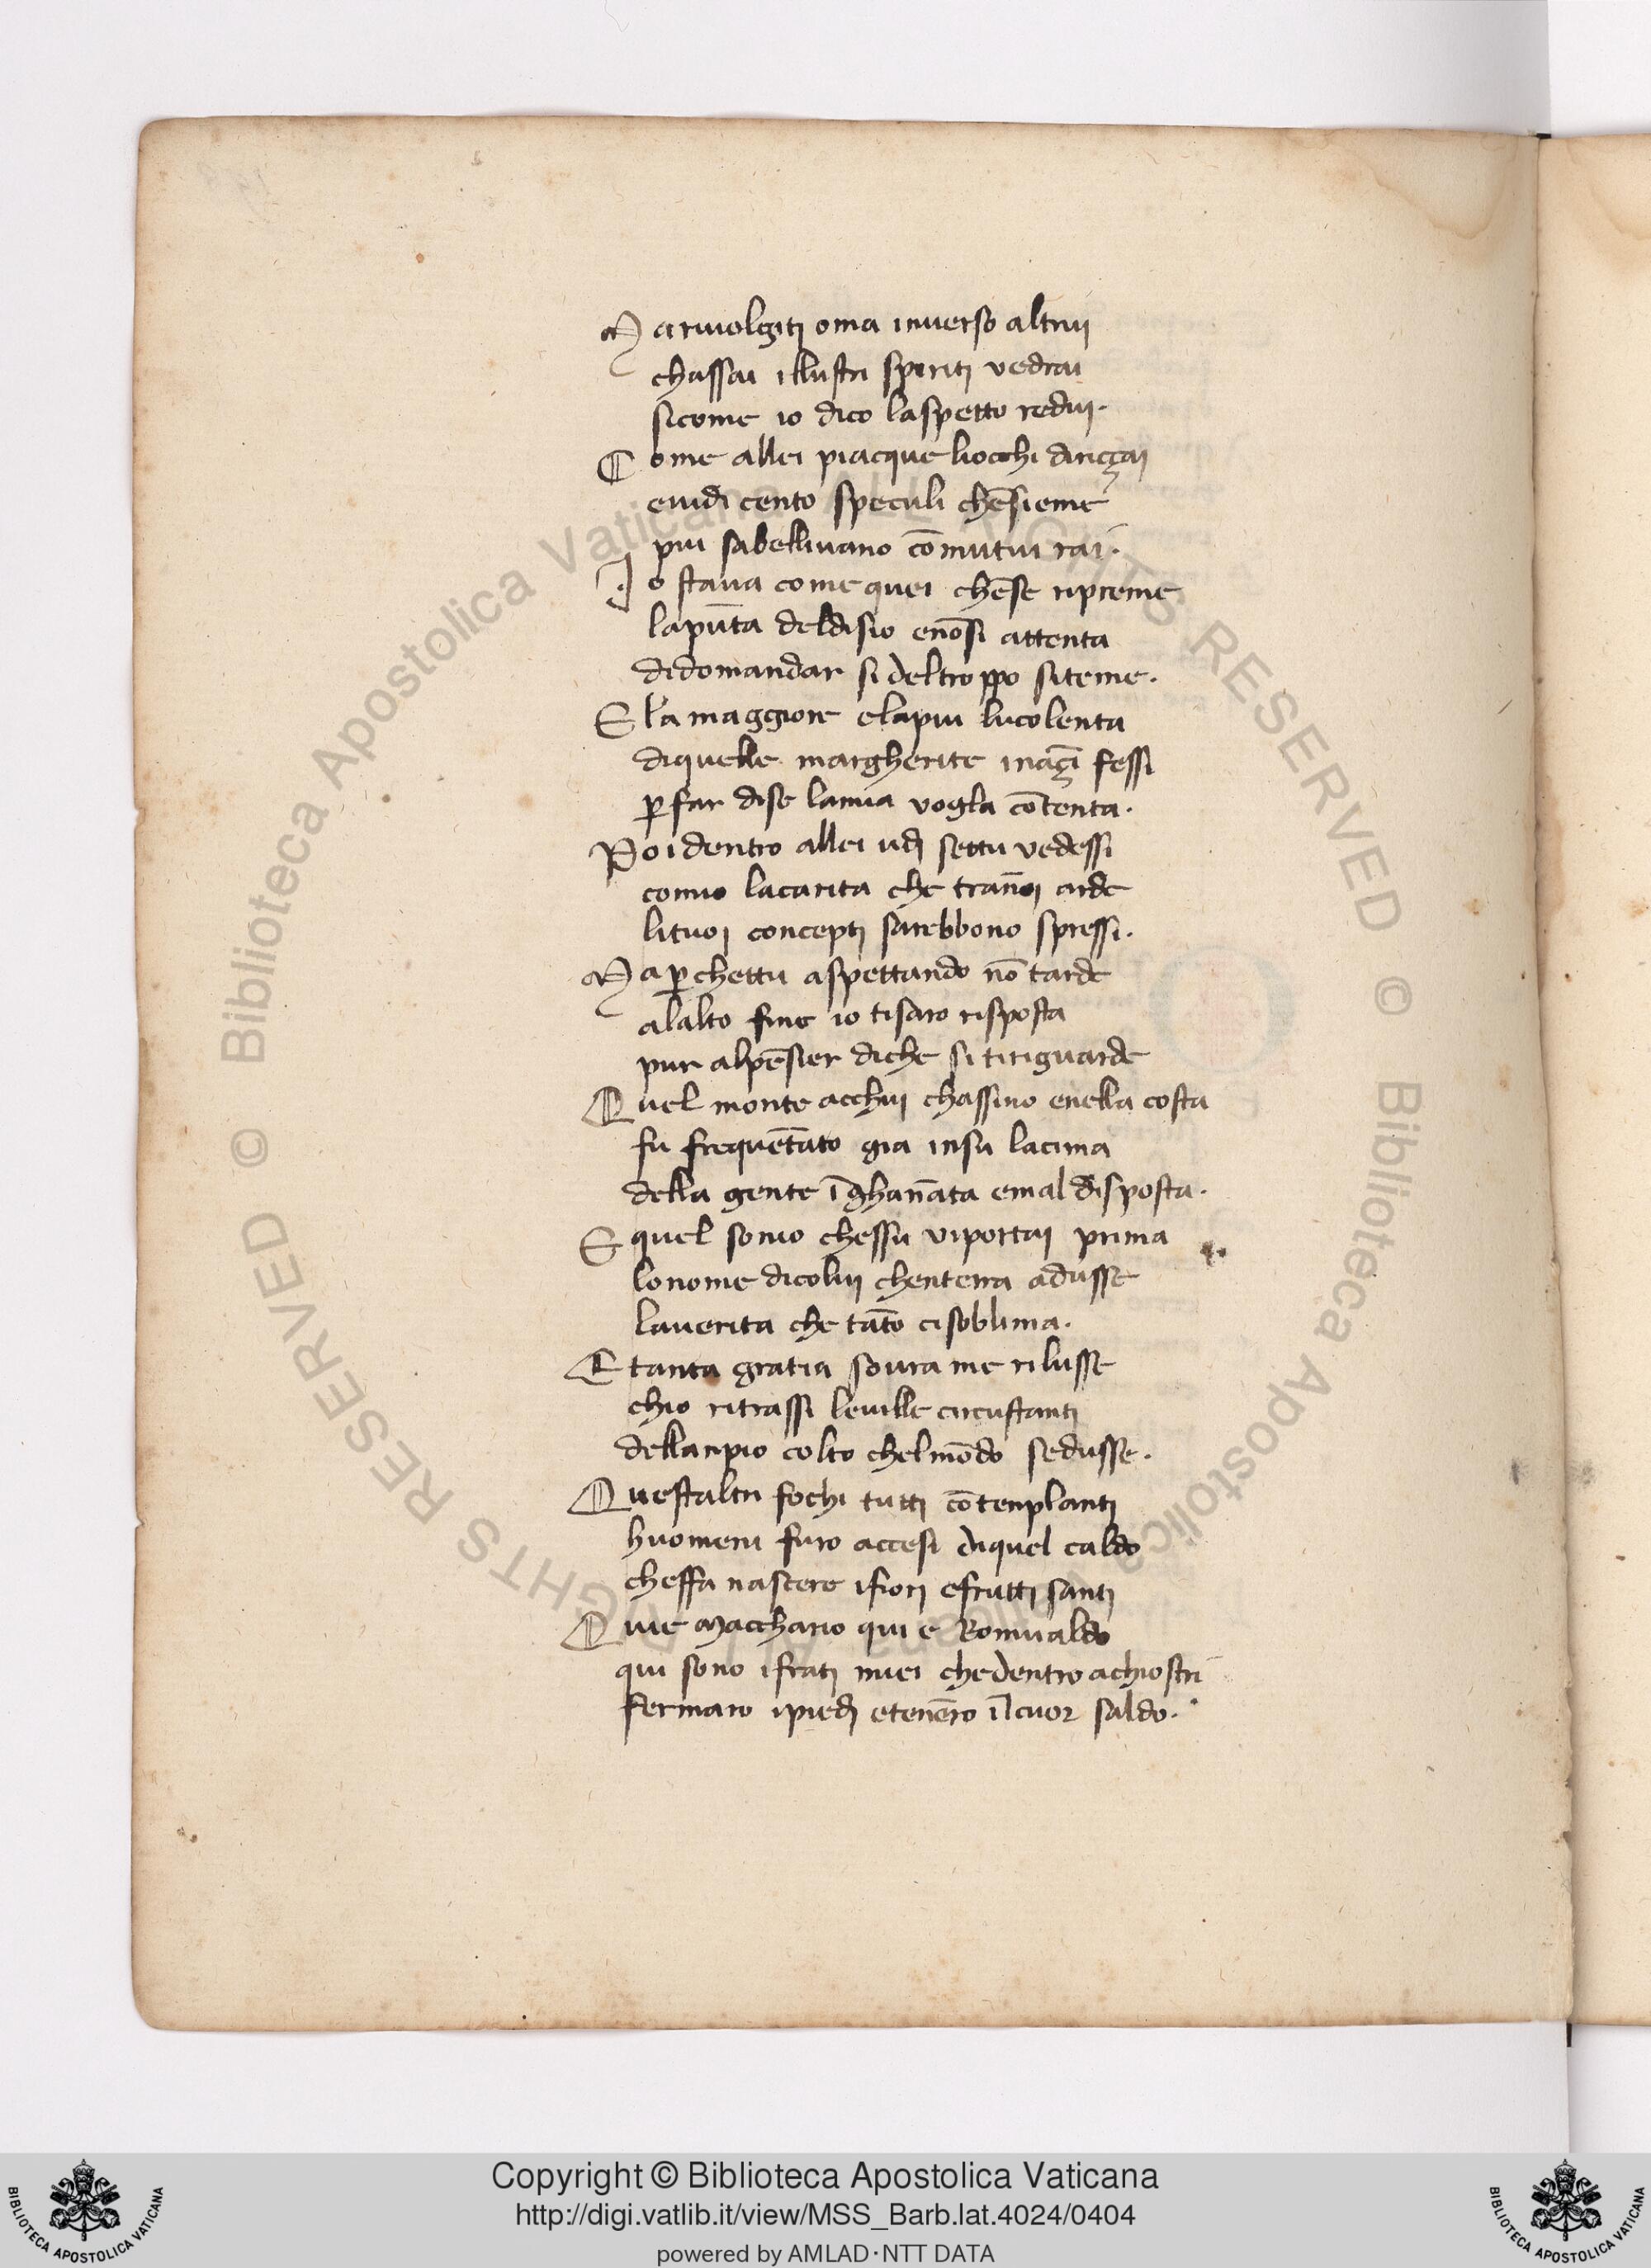 Ma rivolgiti oma inverso altrui
chassai illustri spiriti vedrai
sicome io dico laspetto redui.
Come allei piacque liocchi diriççai
e vidi cento speculi chēsieme
piu sabellivano cō mutui rai.
Io stava come quei chēse ripreme
lapūta deldisio enōsi attenta
didomandar si deltroppo siteme.
E la maggiore elapiu luculenta
diquelle margherite ināçi fessi
ꝑfar dise lamia vogla cōtenta.
Poi dentro allei udi settu vedessi
comio lacarita che tranoi arde
lituoi concepti sarebbono spressi.
Ma ꝑchettu aspettando nō tarde
alalto fine io tisaro risposta
pur alpēsier diche si titiguarde
Quel monte acchui chassino enella costa
fu frequētato gia insu lacima
della gente īghānata emal disposta.
E quel sonio chessu viportai prima
lonome dicolui chenterra adusse
laverita che tāto cisoblima.
E tanta gratia sovra me rilusse
chio ritrassi leville circustanti
dellanpio colto chelmōdo sedusse.
Questaltri fochi tutti cōtenplanti
huomeni furo accesi diquel caldo
cheffa nascere ifiori efrutti santi
Quie Macchario qui e Romualdo
qui sono ifrati miei chedentro achiostri
fermaro ipiedi etenēro īlcuor saldo.
© Biblioteca Apostolica Vaticana ALL RIGHTS RESERVED © Biblioteca Apostolica Vaticana ALL RIGHTS RESERVED
Copyright © Biblioteca Apostolica Vaticana
http://digi.vatlib.it/view/MSS_Barb.lat.4024/0404
powered by AMLAD·NTT DATA
BIBLIOTECA APOSTOLICA VATICANA
BIBLIOTECA APOSTOLICA VATICANA